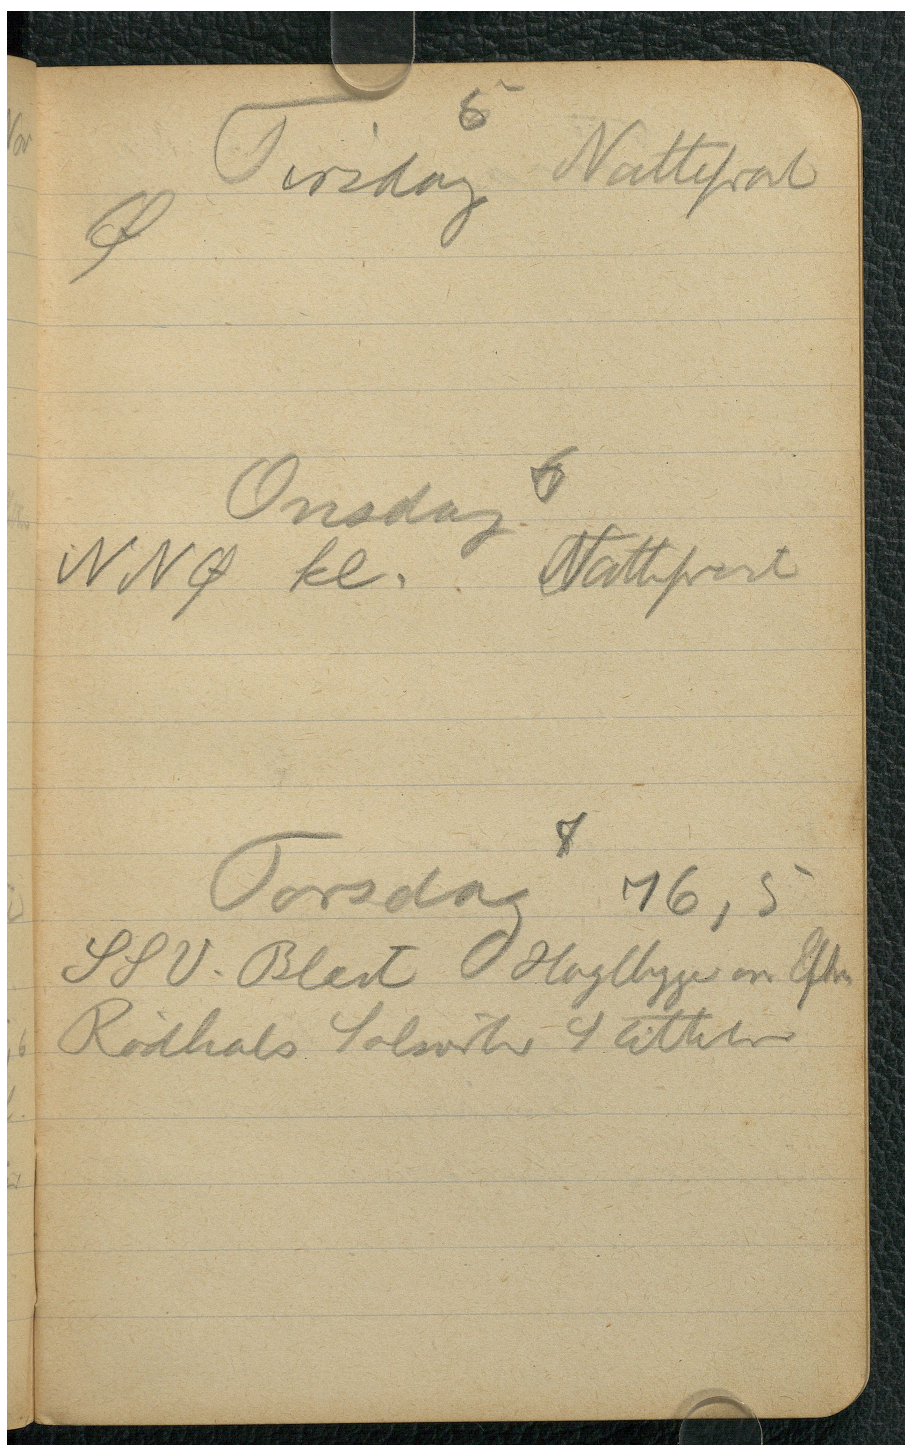 Tirsdag 5 Nattefrost
Ø
Onsdag 6
NNØ kl. Nattefrost
Torsdag 7 76,5
SSV. Blæst Haglbyger om Eftm
Rødhals Solsorte